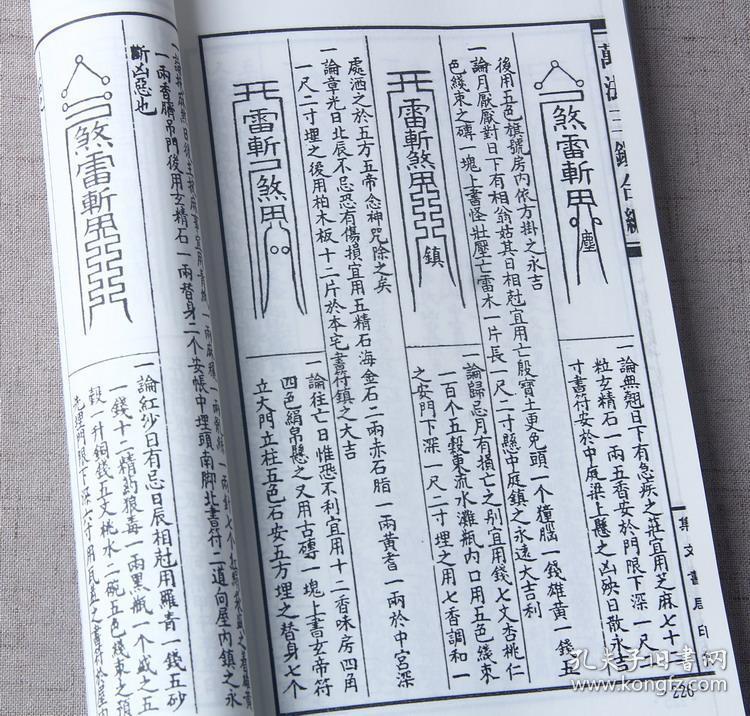 萬法
集文書局印
220
煞雷斬鬼
塵
一論無翹日下有急疾之莊宜用芝麻七十二
粒玄精石一兩五香安於門限下深一尺二
寸書符安於中庭梁上懸之凶殃日散永吉
後用五色旗號房內依方掛之永吉
一論月厭厭對日下有相翁姑其日相尅宜用亡殷寶土更免頭一个獐腦一錢雄黃一錢五
色綫束之磚一塊上書怪壯壓亡雷木一片長一尺二寸懸中庭鎮之永遠大吉利
雷斬煞鬼
鎮
一論歸忌月有損亡之别宜用錢七文杏桃仁
一百个五穀東流水灘瓶內口用五色綫束
之安門下深一尺二寸埋之用七香調和一
處洒之於五方五帝念神咒除之矣
一論章光日北辰不忌恐有傷損宜用五精石海金石二兩赤石脂一兩黃耆一兩於中宮深
一尺二寸埋之後用柏木板十二片於本宅書符鎮之大吉
雷斬煞鬼
一論往亡日惟恐不利宜用十二香味房四角
四色絹帛懸之又用古磚一塊上書玄帝符
立大門立柱五色石安五方埋之替身七个
一兩香臍吊門後用玄精石一兩替身二个安帳中埋頭南脚北書符二道向屋內鎮之永
斷凶惡也
煞雷斬鬼
一論紅沙日有忌日辰相尅用羅青一錢五砂
一錢十二精药狼毒一兩黑瓶一个盛之五
穀一升銅錢五文桃水二碗五色綫束之預
孔夫子旧书网
www.kongfz.com